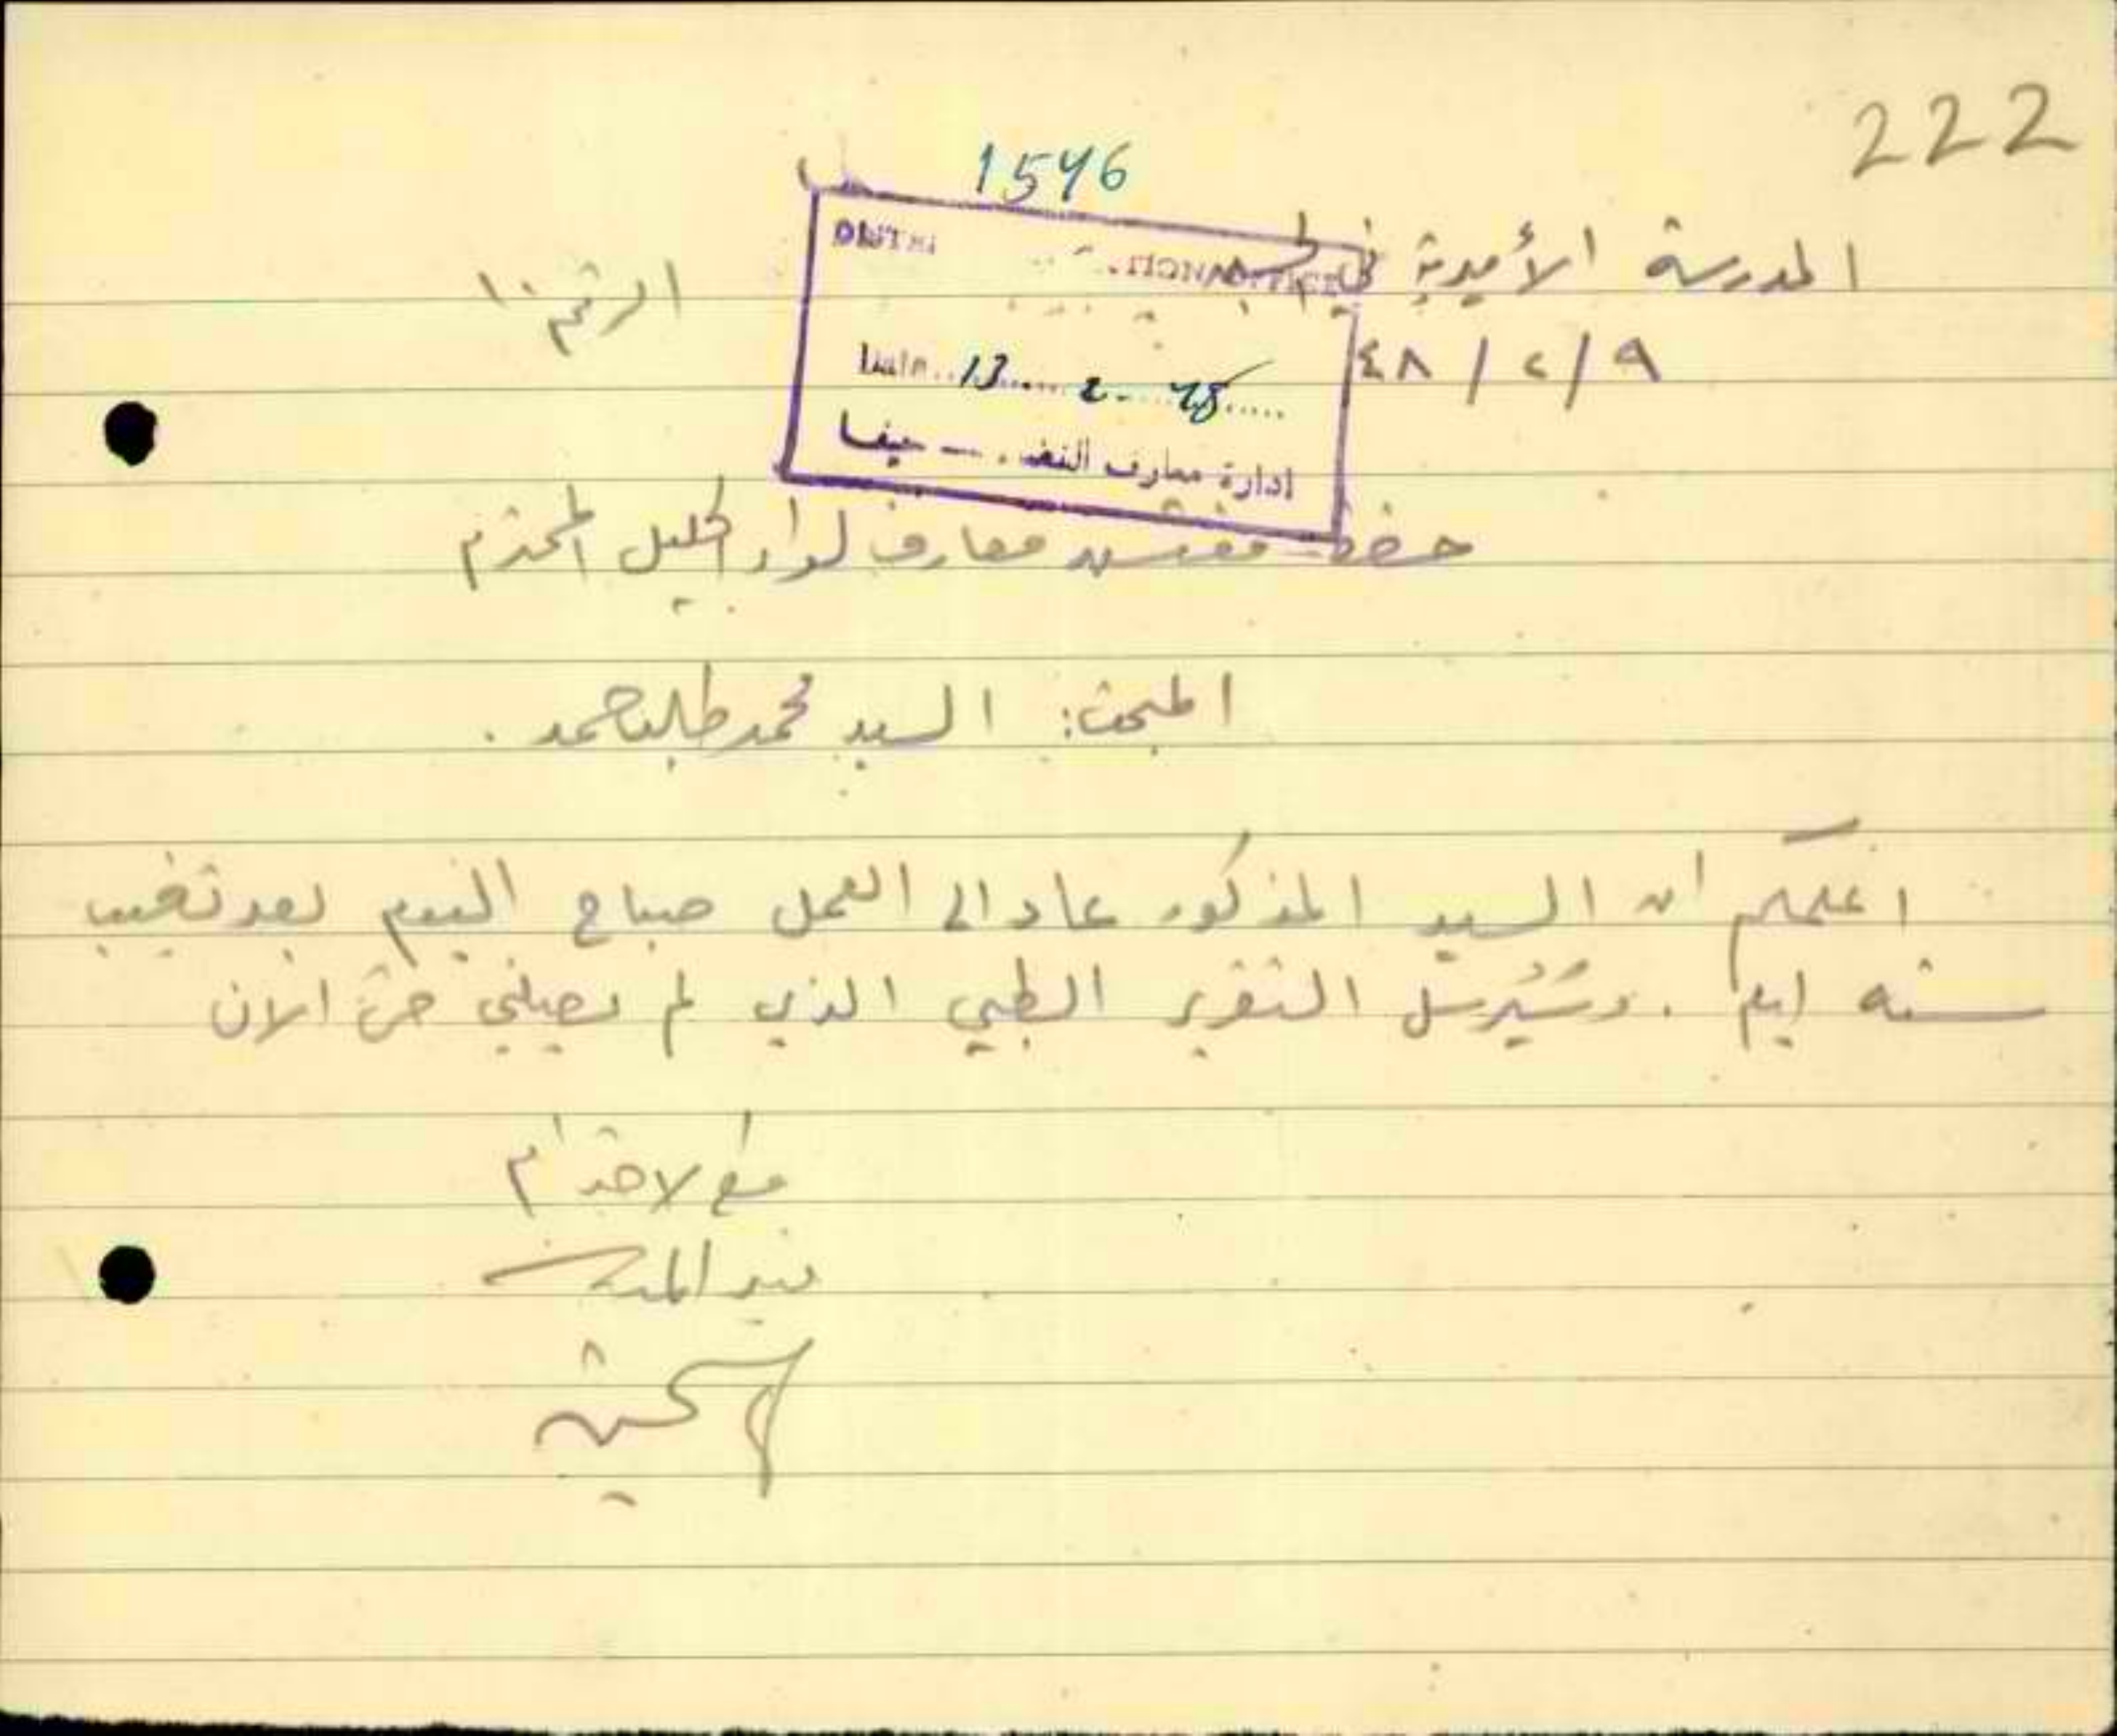 222
1546
المدرسة الأميرية في
الرقم ١٠
٩/٢/٤٨
Date 13 2 48
ادارة معارف القضاء — حيفا
حضرة مفتش معارف لواء الجليل المحترم
المبحث: السيد محمد طلب حمد .
اعلمكم ان السيد المذكور عاد الى العمل صباح اليوم بعد تغيب
ستة ايام . وسَيُرسل التقرير الطبي الذي لم يصلني حتى الان
مع الاحترام
مدير المدرسة